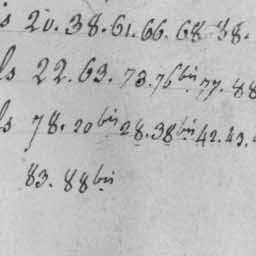 s 20. 38. 61. 66. 68 38.
ls 22. 63. 73. 76 bis. 77. 88
ls 78. 20 bis 28. 38 bis 42. 43.
83. 88 bis